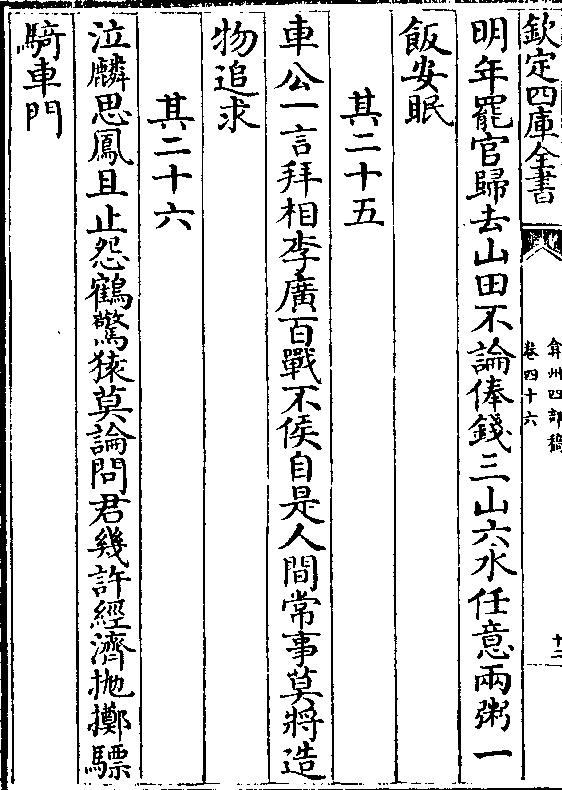 欽定四庫全書
弇州四部稿
卷四十六
十二
明年罷官歸去山田不論俸錢三山六水任意兩粥一
飯安眠
其二十五
車公一言拜相李廣百戰不侯自是人間常事莫將造
物追求
其二十六
泣麟思鳳且止怨鶴驚猿莫論問君幾許經濟抛擲驃
騎車門